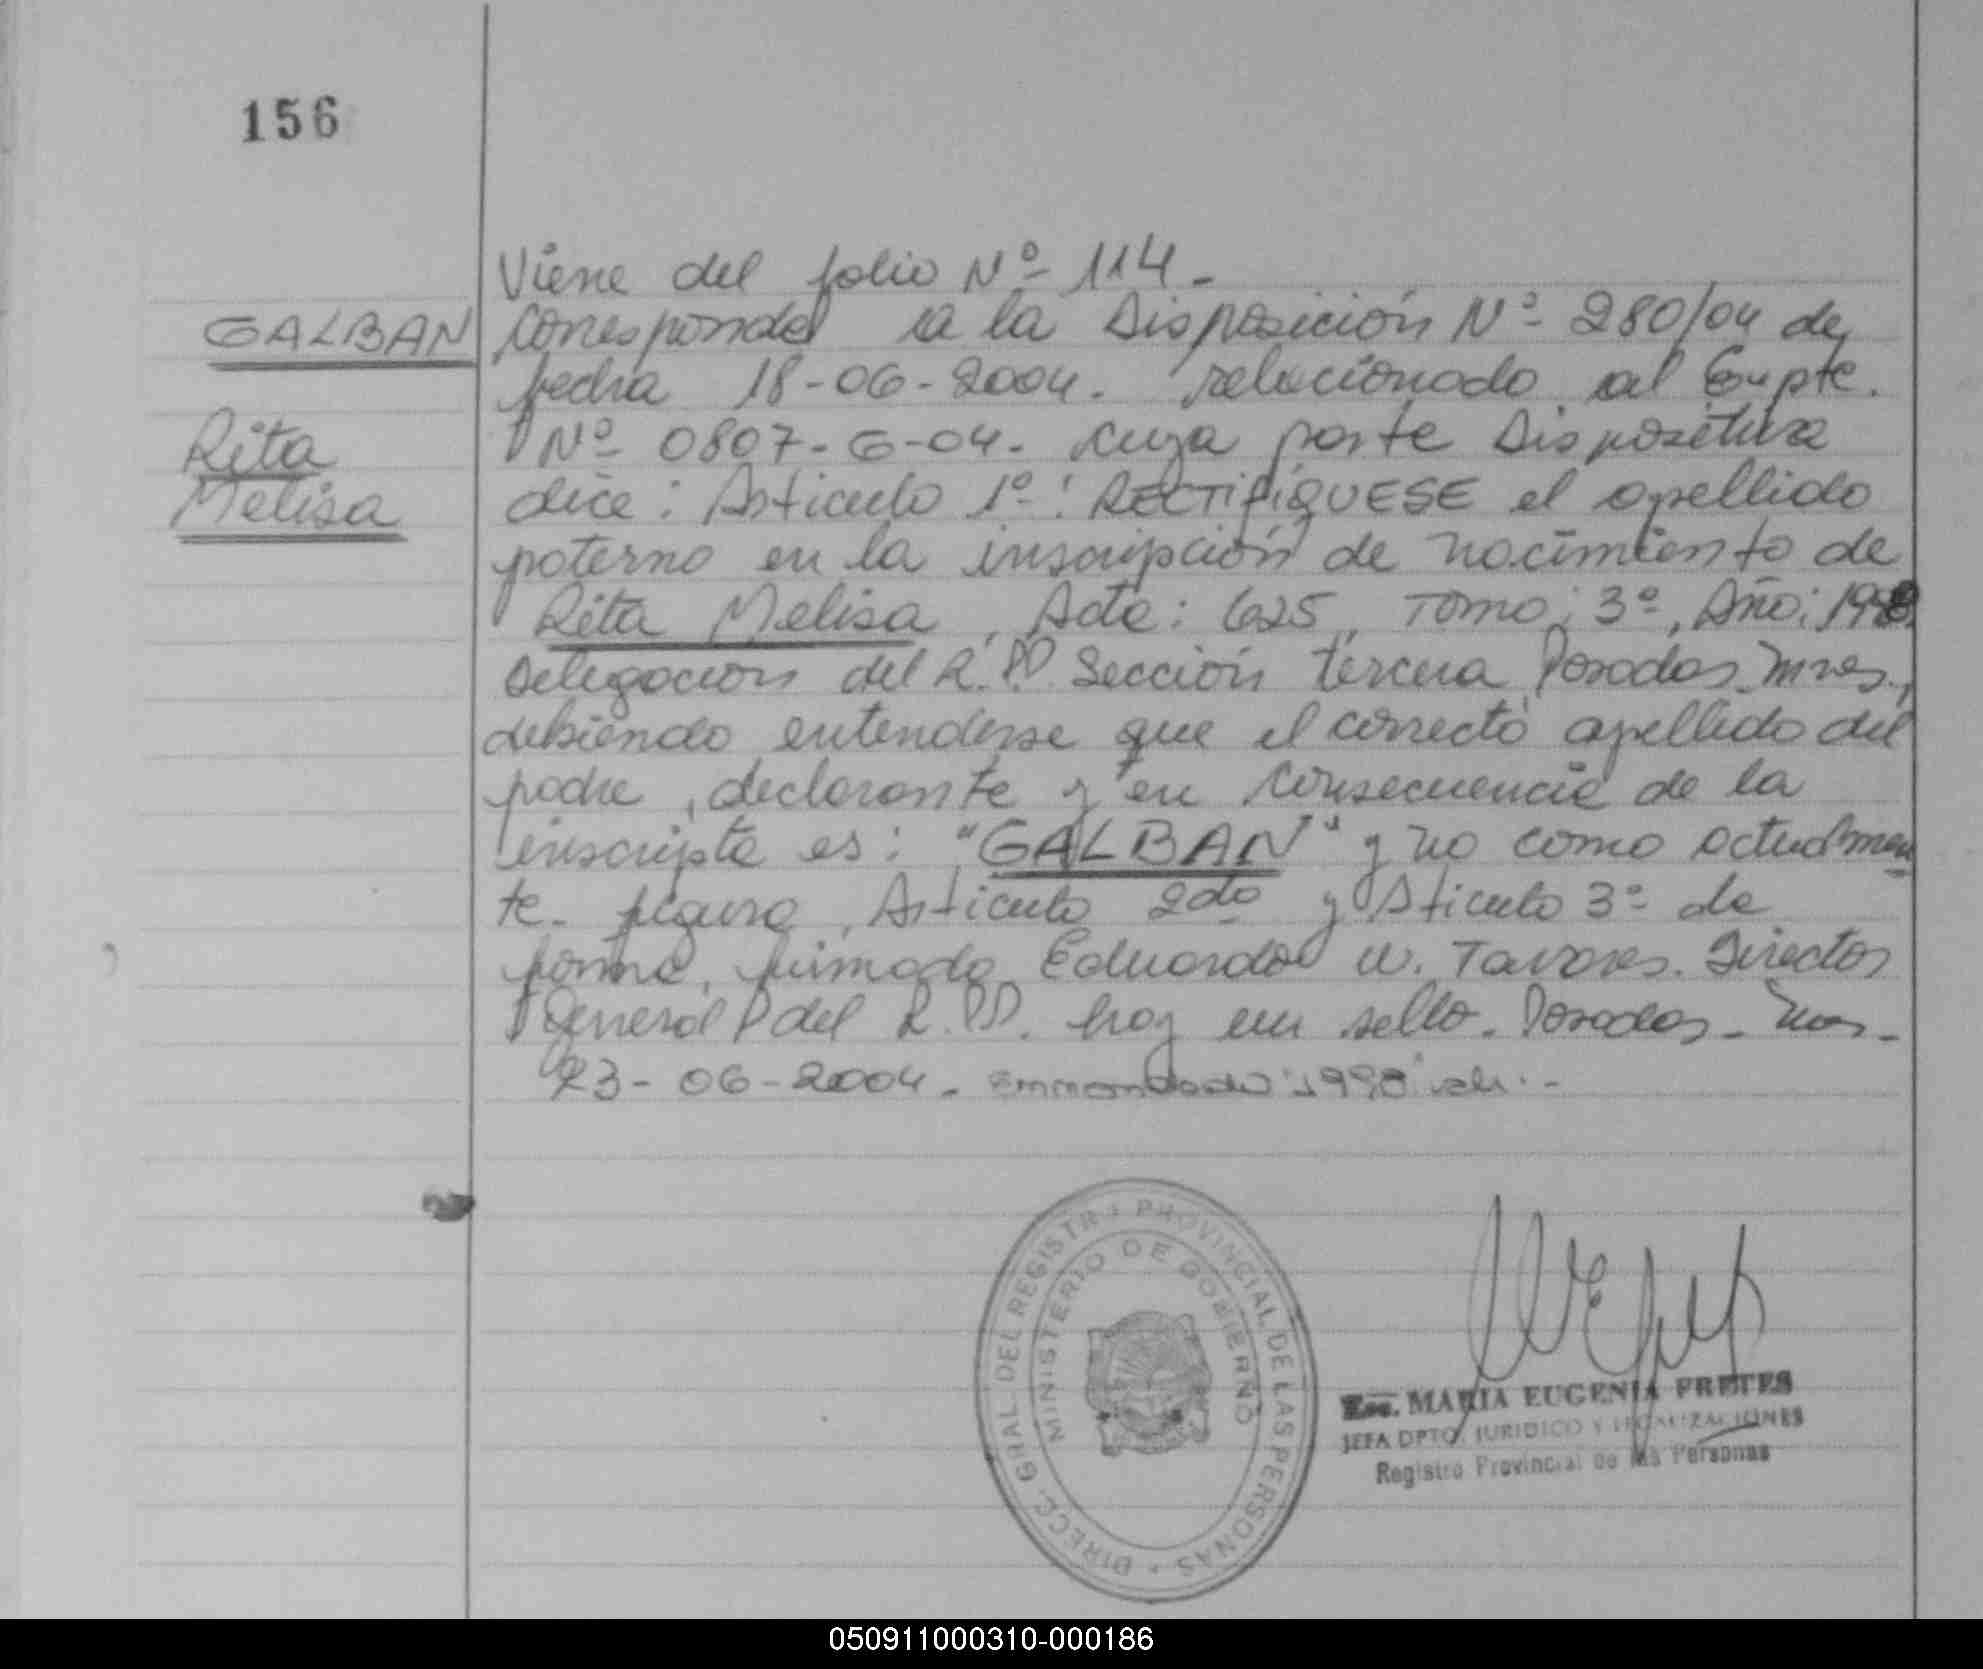 156
GALBAN
Rita
Melisa
Viene del folio Nº 114-
Corresponde a la Disposición Nº 280/04 de
fecha 18-06-2004. relacionado al Expte.
Nº 0807-G-04- cuya parte Dispositiva
dice: Articulo 1º: RECTIFIQUESE el apellido
paterno en la inscripción de nacimiento de
Rita Melisa, Acta: 625, Tomo: 3º, Año: 1998
Delegación del R.PP. Sección tercera Posadas Mnes,
debiendo entenderse que el correcto apellido del
padre, declarante y en consecuencia de la
inscripta es: "GALBAN" y no como actualmen
te figura, Articulo 2do y Aticulo 3º de
forma, firmado Eduardo W. Tavares. Director
General del R.PP. hay un sello. Posadas - Mnes -
23-06-2004- Enmendado "1998" vale.-
DIRECC. GRAL. DEL REGISTRO PROVINCIAL DE LAS PERSONAS
MINISTERIO DE GOBIERNO
Esc. MARIA EUGENIA FRETES
JEFA DPTO. JURIDICO Y LEGALIZACIONES
Registro Provincial de las Personas
050911000310-000186